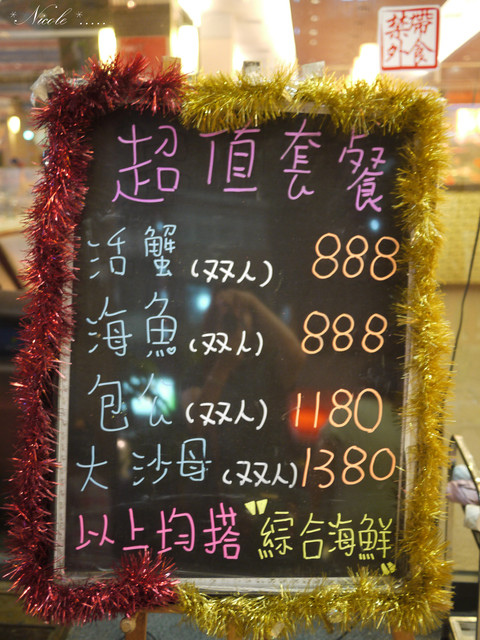 *Nicole*.....
禁帶
外食
超值套餐
活蟹(双人) 888
海魚(双人) 888
包公(双人) 1180
大沙母(双人) 1380
以上均搭"綜合海鮮"